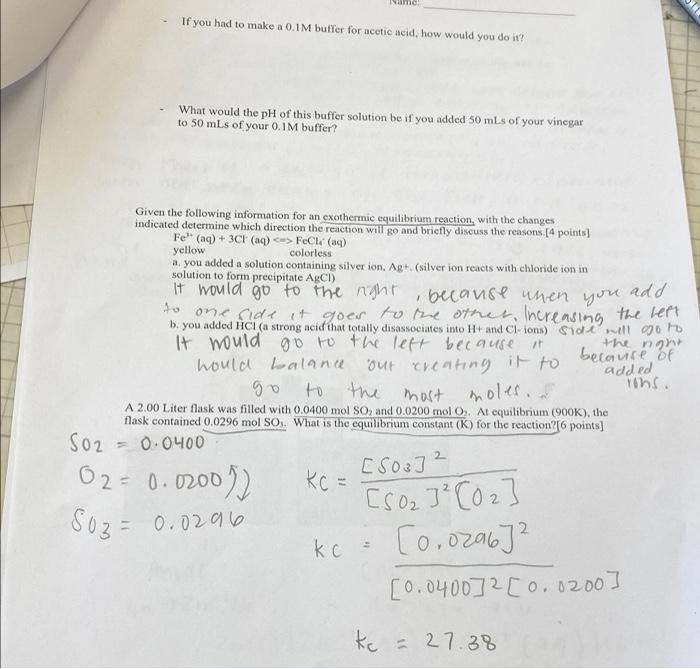 Name:
- If you had to make a 0.1M buffer for acetic acid, how would you do it?
- What would the pH of this buffer solution be if you added 50 mLs of your vinegar
to 50 mLs of your 0.1M buffer?
Given the following information for an exothermic equilibrium reaction, with the changes
indicated determine which direction the reaction will go and briefly discuss the reasons.[4 points]
Fe³⁺ (aq) + 3Cl⁻ (aq) <=> FeCl₄⁻ (aq)
yellow colorless
a. you added a solution containing silver ion, Ag+. (silver ion reacts with chloride ion in
solution to form precipitate AgCl)
It would go to the right, because when you add
to one side it goes to the other. Increasing the left
side will go to
the right
because of
added
ions.
b. you added HCl (a strong acid that totally disassociates into H+ and Cl- ions)
It would go to the left because it
would balance out creating it to
go to the most moles.
A 2.00 Liter flask was filled with 0.0400 mol SO₂ and 0.0200 mol O₂. At equilibrium (900K), the
flask contained 0.0296 mol SO₃. What is the equilibrium constant (K) for the reaction?[6 points]
SO2 = 0.0400
O2 = 0.0200
SO3 = 0.0296
Kc = [SO3]²
[SO2]²[O2]
kc = [0.0296]²
[0.0400]2[0.0200]
kc = 27.38